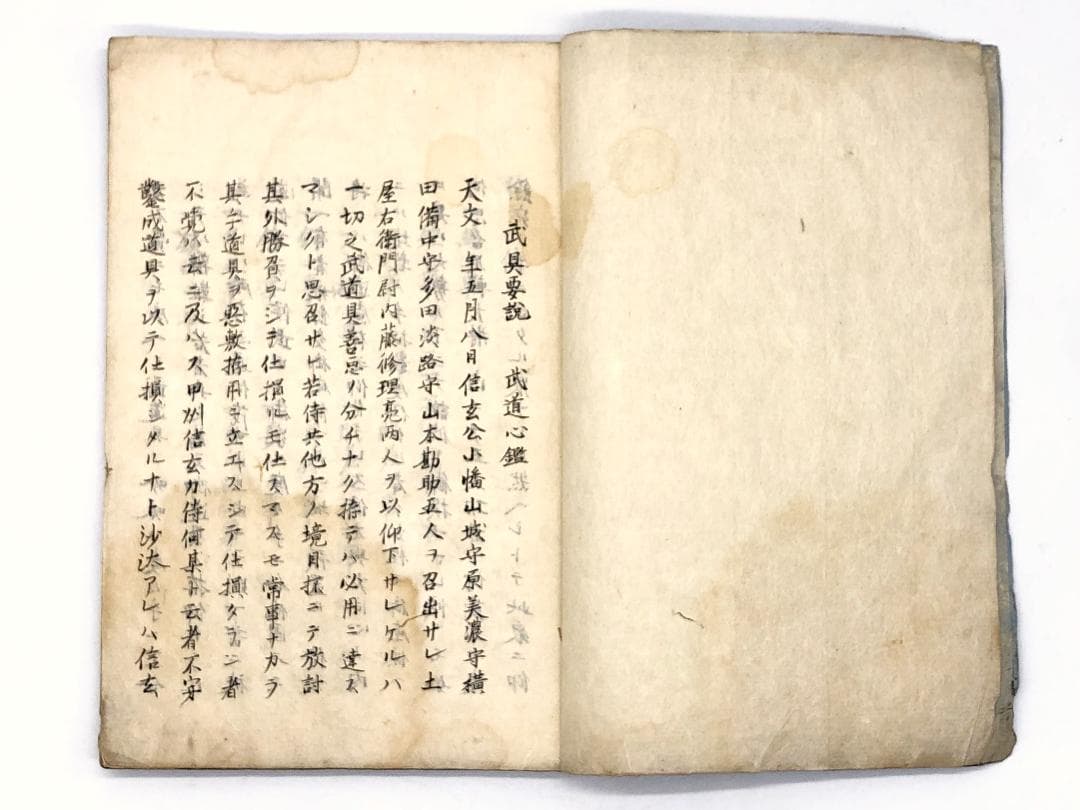 武具要説
天文 年五月八日信玄公小幡山城守原美濃守横
田備中守多田淡路守山本勘助五人ヲ召出サレ土
屋右衛門尉内藤修理亮両人ヲ以仰下サレケルハ
一切之武道具善悪ノ分チナク捨テハ必用ニ達
マシクト思召サレ若侍共他方ノ境目 ニテ放討
其外勝負ヲシテ仕損ルモ仕スマスモ常事ナカラ
其手道具ヲ悪敷拵用ニ立エスシテ仕損タラン者
不覚 云ニ及ハス甲州信玄カ侍何某ト云者不穿
鑿成道具ヲ以テ仕損 タルナト沙汰アレハ信玄